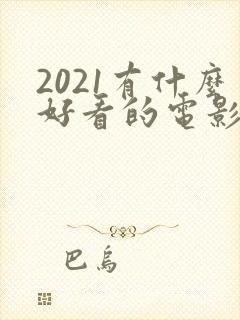 2021有什麼
好看的電影
巴烏